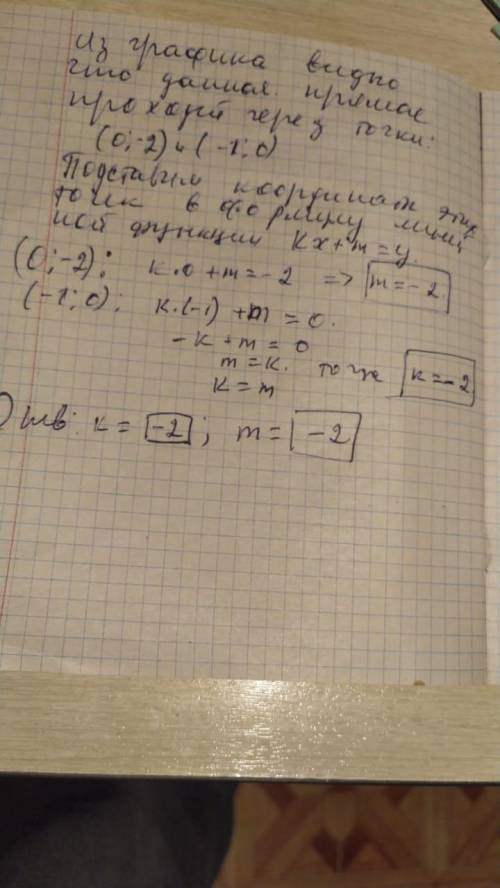 Из графика видно
что данная прямая
проходит через точки:
(0;-2) и (-1;0)
Подставим координаты этих
точек в формулу линей
ной функции kx+m=y.
(0;-2): k·0+m=-2 => m=-2
(-1;0): k·(-1)+m=0.
-k+m=0
m=k. тогда k=-2
k=m
Отв: k=-2; m=-2